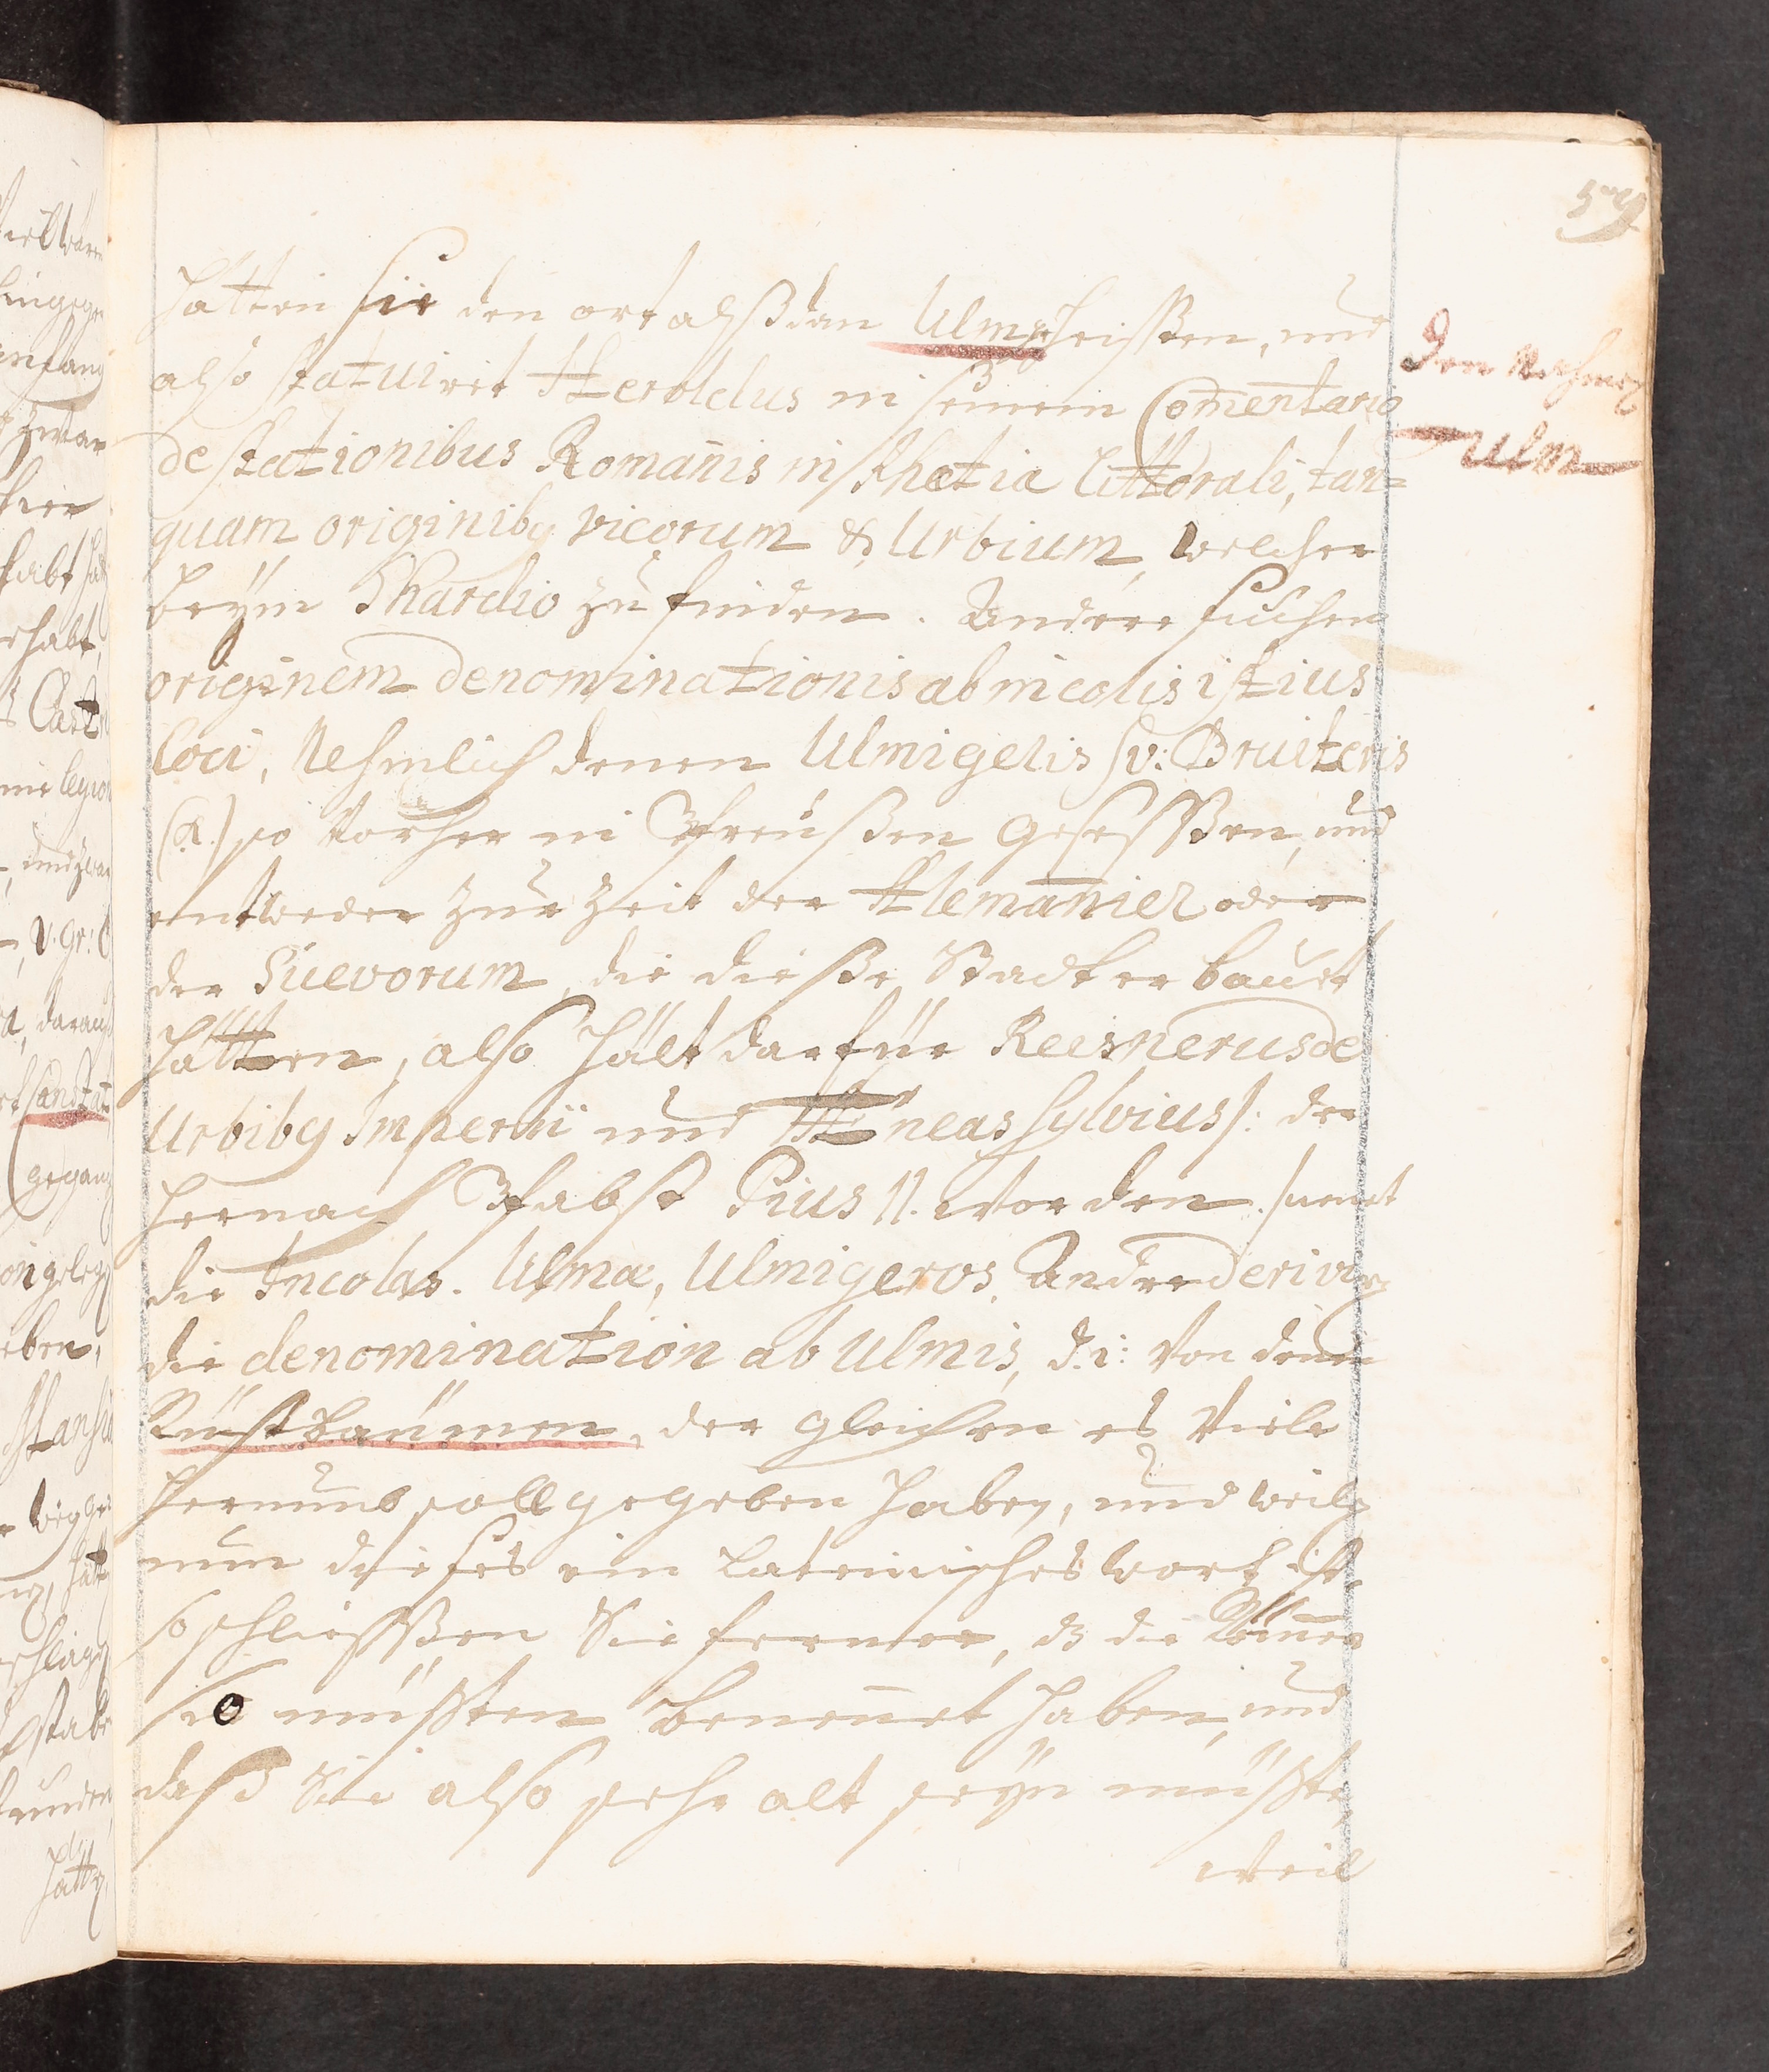 hätten sie den ort alßdan Ulm geheissen, und
also statuiret Heroldus in seinem Com̄entario
de stationibus Romanis in Rhætia littorali, tan=
quam originibq vicorum & Urbium, welcher
beym Schardio zu finden. Andere suchen
originem denominationis ab incolis istius
loci, Nehmlich denen Ulmigetis sv: Bructeris
(a.) so vorher in Preussen gesessen, und
entweder zur Zeit der Alemannier oder
der Suevorum, die diese Stadt erbauet
hätten, also hält darfür Reusnerus de
Urbibq Imperii und Æneas Sylvius /: der
hernach Pabst Pius II. worden :/ nent
die Incolas Ulmæ, Ulmigeros, Andre derivirn
die denomination ab Ulmis, d. i: von denen
Rüstbäumen, der gleichen es viele
herumb soll gegeben haben, und weiln
nun dieses ein lateinisches wort ist,
so schliessen Sie ferner, dz die Röm̄er
so müssten benen̄et haben, und
daß Sie also sehr alt seyn müsste,
weil
Den Nahmen
Ulm